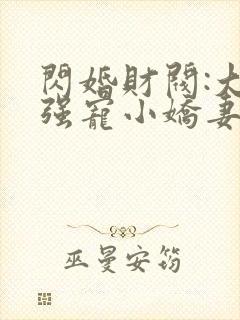 閃婚財閥:大
强寵小嬌妻
巫曼安筠